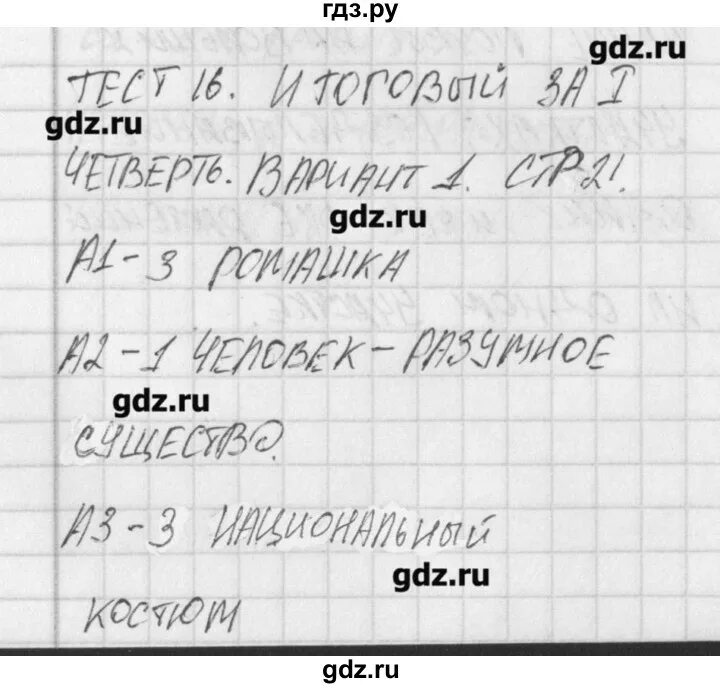 гдз.ру
gdz.ru
ТЕСТ 16. ИТОГОВЫЙ ЗА I
gdz.ru
ЧЕТВЕРТЬ. ВАРИАНТ 1. СТР 21.
gdz.ru
А1-3 РОМАШКА
А2-1 ЧЕЛОВЕК-РАЗУМНОЕ
gdz.ru
СУЩЕСТВО.
А3-3 НАЦИОНАЛЬНЫЙ
gdz.ru
КОСТЮМ
gdz.ru